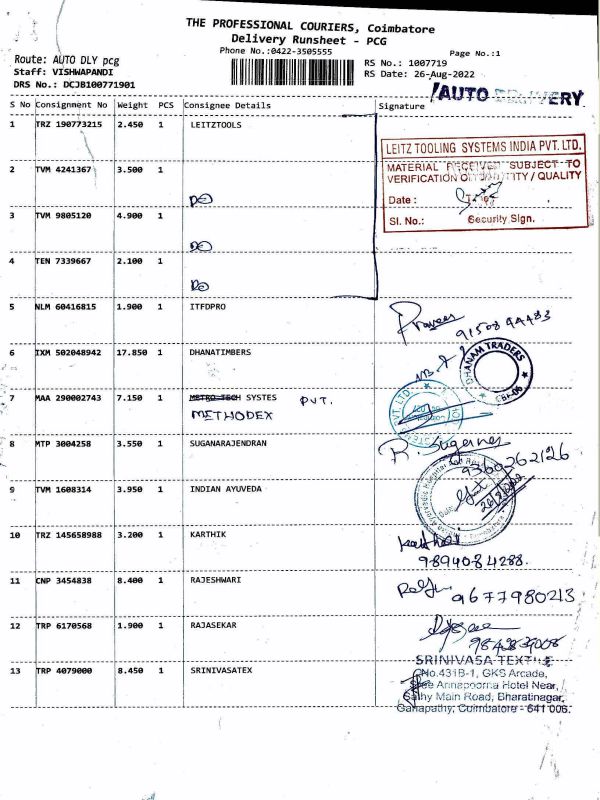 THE PROFESSIONAL COURIERS, Coimbatore
Delivery Runsheet - PCG
Phone No.:0422-3505555
Page No.:1
Route: AUTO DLY pcg
Staff: VISHWAPANDI
DRS No.: DCJB100771901
RS No.: 1007719
RS Date: 26-Aug-2022
AUTO DELIVERY
S No Consignment No Weight PCS Consignee Details Signature
1 TRZ 190773215 2.450 1 LEITZTOOLS
LEITZ TOOLING SYSTEMS INDIA PVT. LTD.
MATERIAL RECEIVED SUBJECT TO
VERIFICATION OF QUANTITY / QUALITY
Date :
Sl. No.: Security Sign.
2 TVM 4241367 3.500 1
DO
3 TVM 9805120 4.900 1
DO
4 TEN 7339667 2.100 1
DO
5 NLM 60416815 1.900 1 ITFDPRO
Praveen
9150894483
6 IXM 502048942 17.850 1 DHANATIMBERS
DHANAM TRADERS
7 MAA 290002743 7.150 1 METRO TECH SYSTES PVT.
METHODEX
8 MTP 3004258 3.550 1 SUGANARAJENDRAN
9360262126
9 TVM 1608314 3.950 1 INDIAN AYUVEDA
10 TRZ 145658988 3.200 1 KARTHIK
9894084288.
11 CNP 3454838 8.400 1 RAJESHWARI
9677980213
12 TRP 6170568 1.900 1 RAJASEKAR
13 TRP 4079000 8.450 1 SRINIVASATEX
SRINIVASA TEXTILE
No.431B-1, GKS Arcade,
Sree Annapoorna Hotel Near,
Sathy Main Road, Bharatinagar,
Ganapathy, Coimbatore - 641 006.